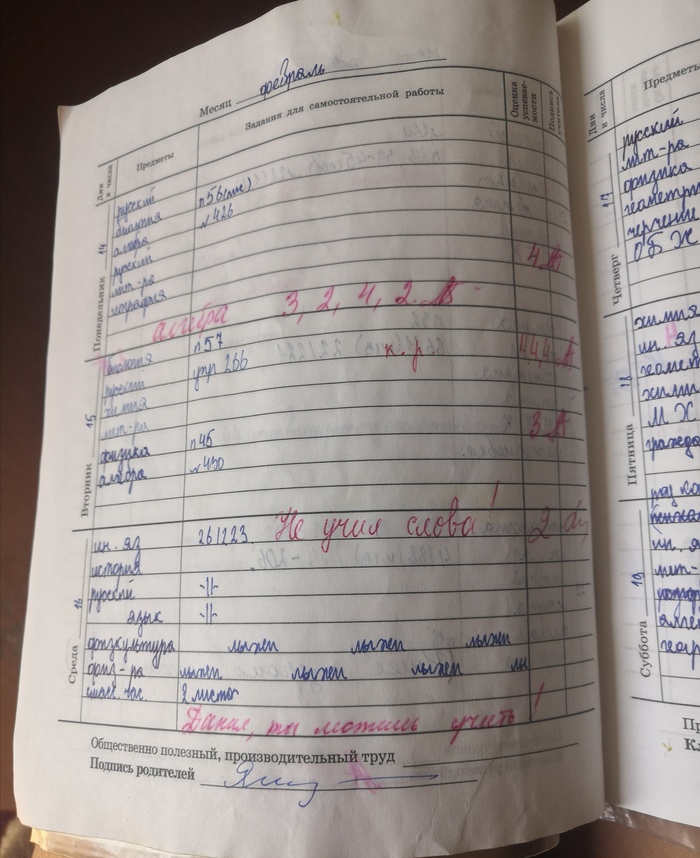 Месяц февраль
Дни и числа Предметы Задания для самостоятельной работы Оценка успевае-мости Подпись учителя
Понедельник 14
русский
биология п 56 (
алгебра № 426
русский
лит-ра 4
география
алгебра 3, 2, 4, 2.
Вторник 15
биология п 57 к.р 444
русский упр 266
химия
лит-ра 3
физика п 46
алгебра № 430
Среда 16
ин. яз 261223 Не учил слова! 2
история
русский -||-
язык -||-
физкультура лыжи лыжи лыжи
физ-ра лыжи лыжи лыжи
класс. час. 2 листов
Данил, ты можешь учить!
Общественно полезный, производительный труд
Подпись родителей
Дни и числа Предметы
Четверг 17
русский
лит-ра
физика
геометри
черчени
ОБЖ
Пятница 18
химия
ин. яз
геомет
хими
МХ
Суббота 19
ин. я
лит-
алге
геогр
Пр
Кл